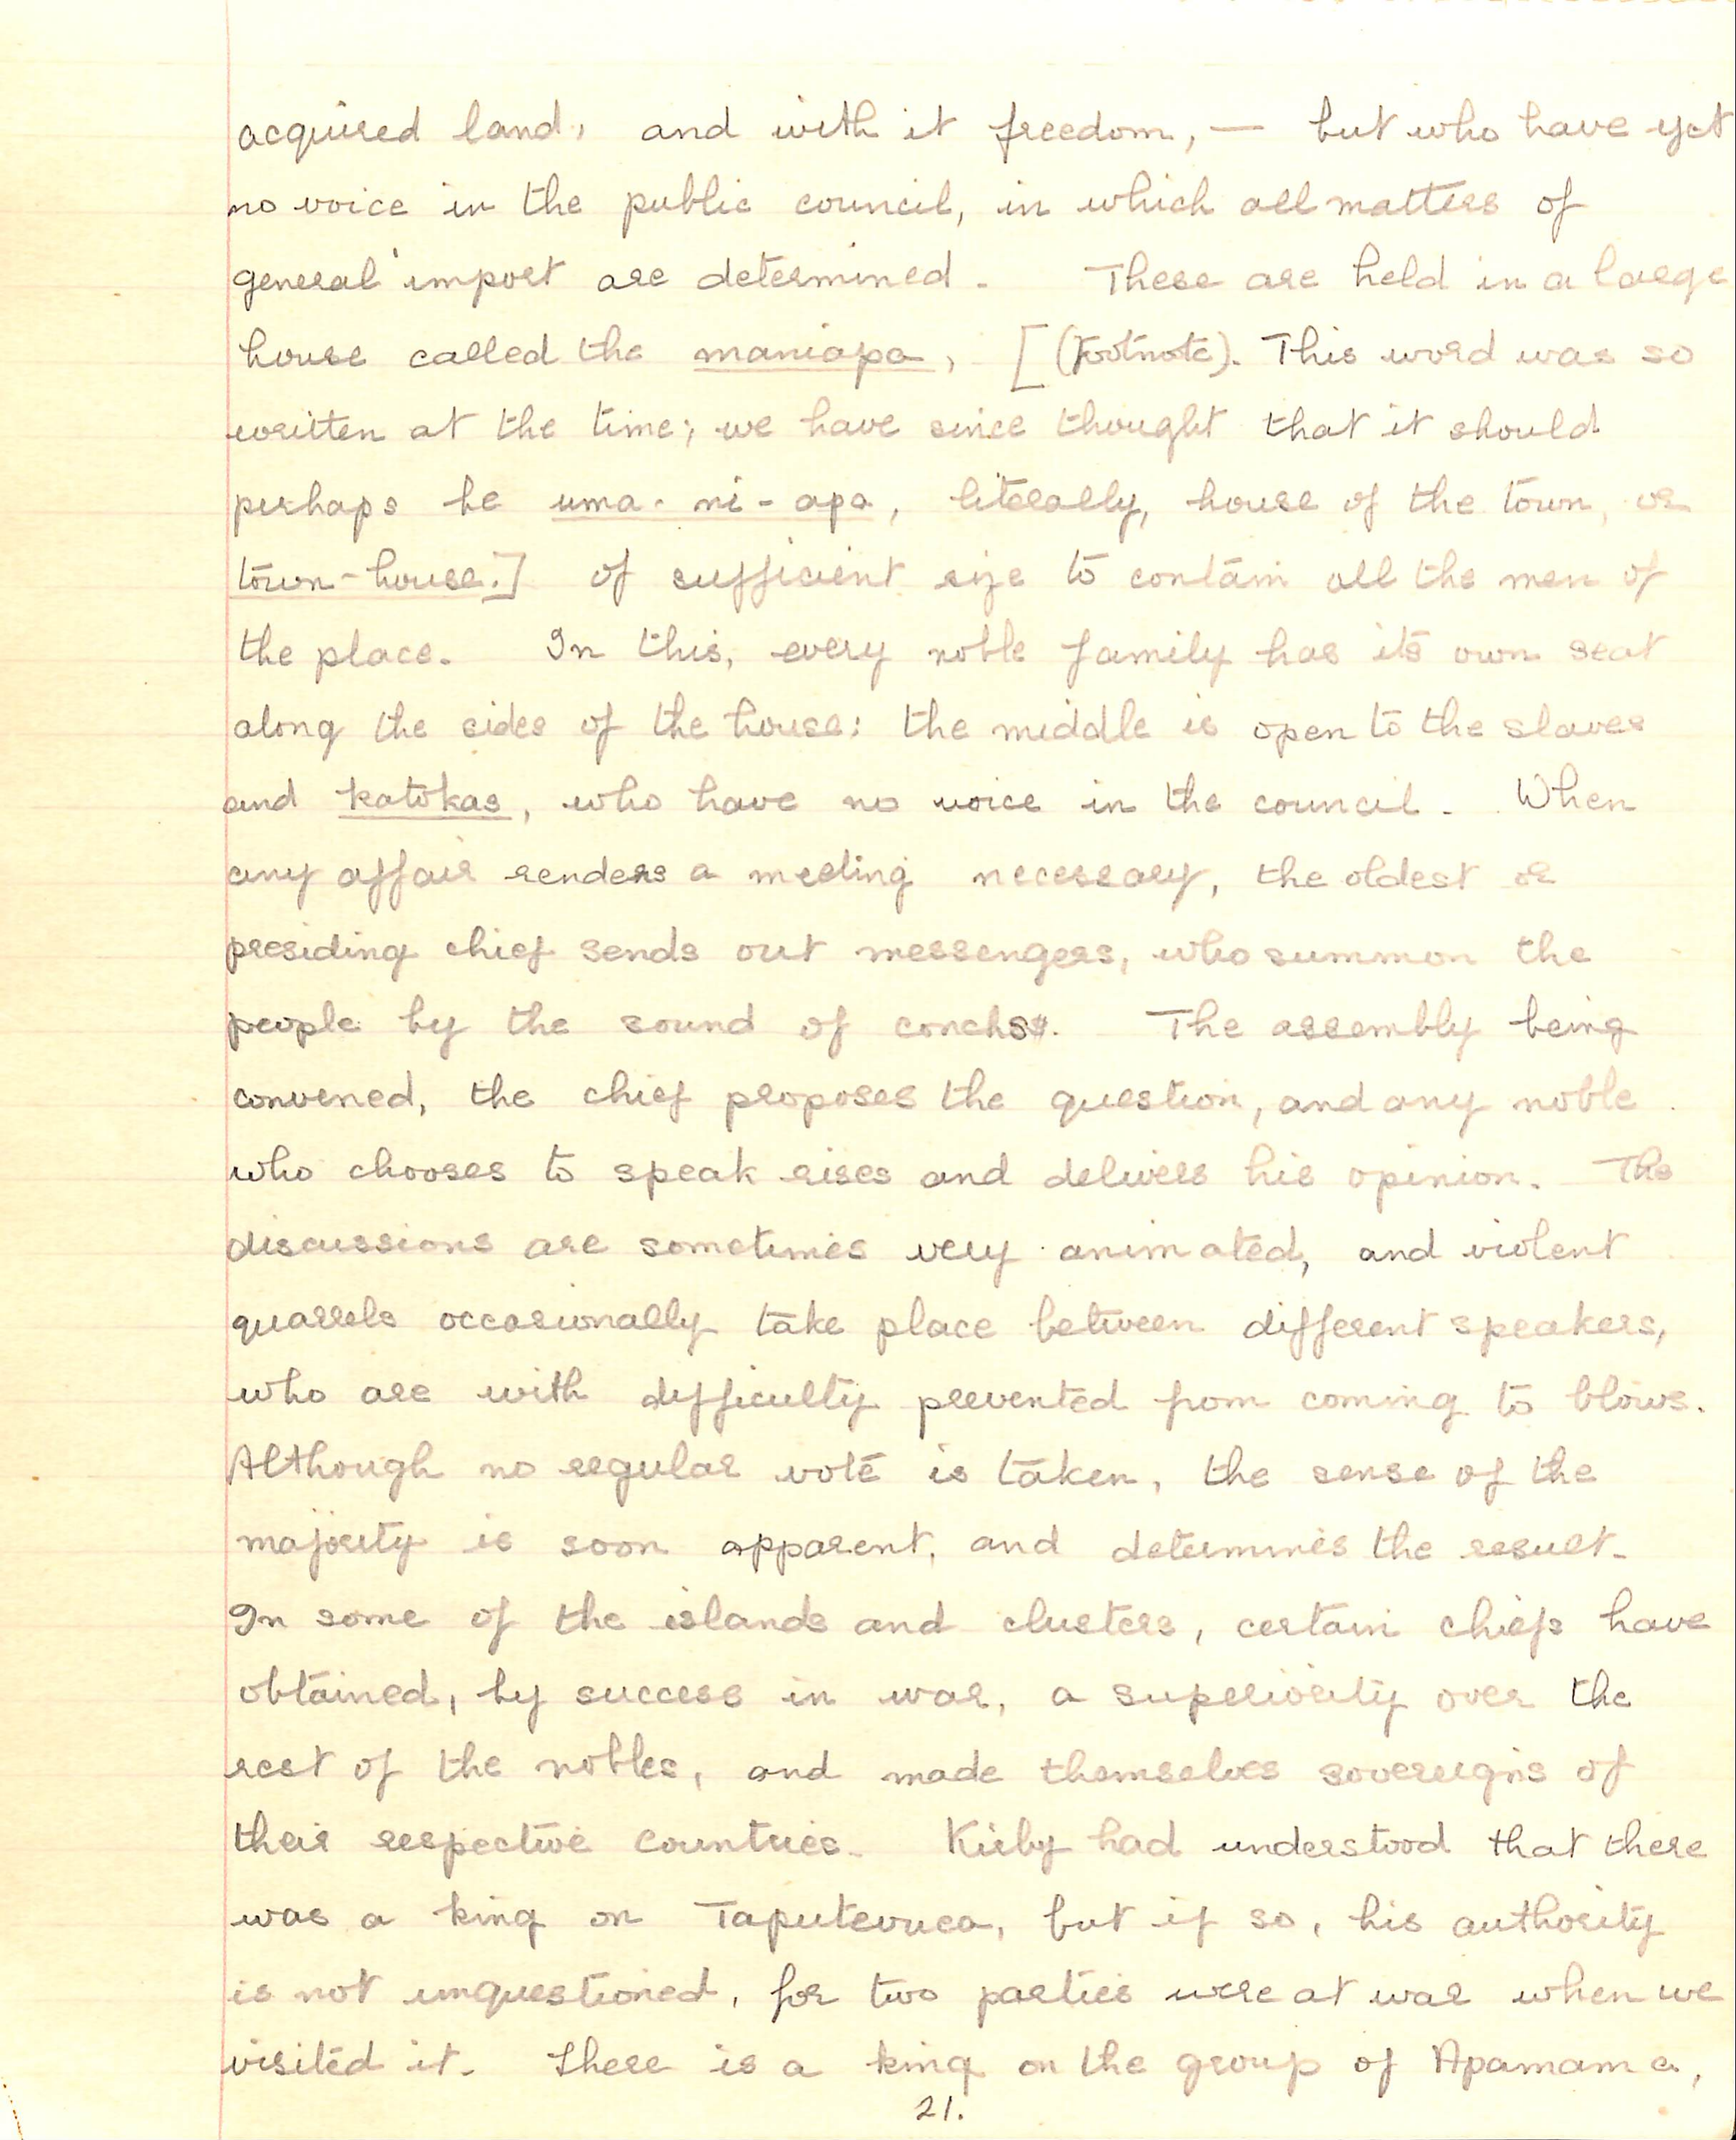 acquired land, and with it freedom, — but who have yet
no voice in the public council, in which all matters of
general import are determined. These are held in a large
house called the maniapa, [(Footnote). This word was so
written at the time; we have since thought that it should
perhaps be uma-ni-apa, literally, house of the town, or
town-house.] of sufficient size to contain all the men of
the place. In this, every noble family has its own seat
along the sides of the house: the middle is open to the slaves
and katokas, who have no voice in the council. When
any affair renders a meeting necessary, the oldest or
presiding chief sends out messengers, who summon the
people by the sound of conchs. The assembly being
convened, the chief proposes the question, and any noble
who chooses to speak rises and delivers his opinion. The
discussions are sometimes very animated, and violent
quarrels occasionally take place between different speakers,
who are with difficulty prevented from coming to blows.
Although no regular vote is taken, the sense of the
majority is soon apparent, and determines the result.
In some of the islands and clusters, certain chiefs have
obtained, by success in war, a superiority over the
rest of the nobles, and made themselves sovereigns of
their respective countries. Kirby had understood that there
was a king on Taputeouea, but if so, his authority
is not unquestioned, for two parties were at war when we
visited it. There is a king on the group of Apamama,
21.